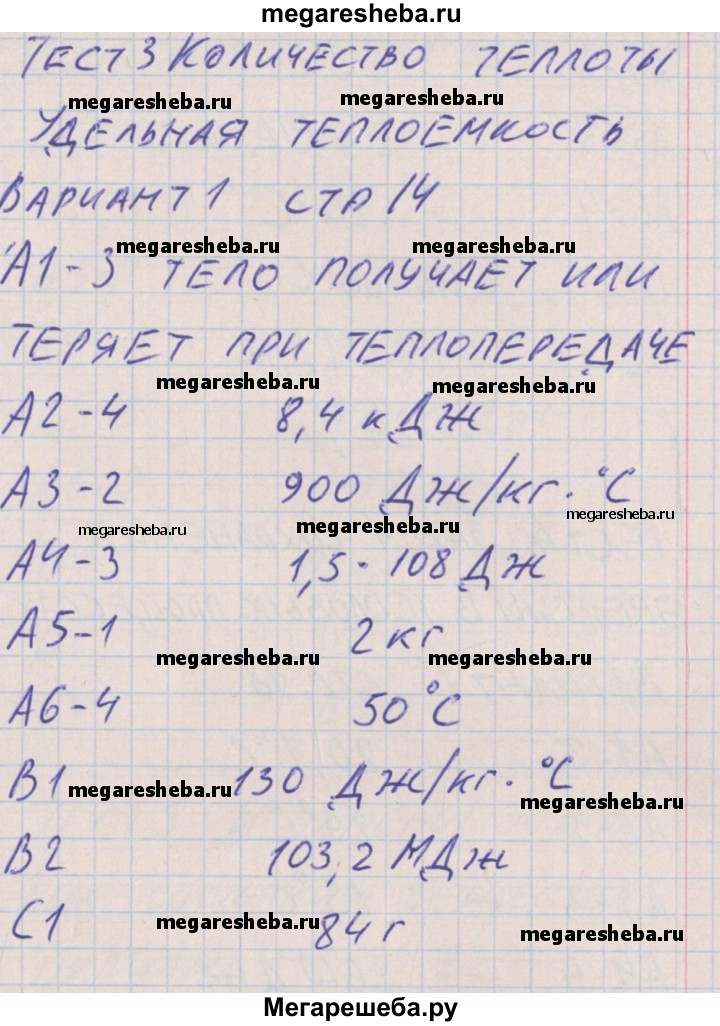 megaresheba.ru
Тест 3 Количество теплоты
megaresheba.ru megaresheba.ru
Удельная теплоемкость
Вариант 1 стр 14
megaresheba.ru megaresheba.ru
А1-3 тело получает или
теряет при теплопередаче
megaresheba.ru megaresheba.ru
А2-4 8,4 кДж
А3-2 900 Дж/кг·°С
megaresheba.ru megaresheba.ru megaresheba.ru
А4-3 1,5·108 Дж
А5-1 2 кг
megaresheba.ru megaresheba.ru
А6-4 50°С
В1 130 Дж/кг·°С
megaresheba.ru megaresheba.ru
В2 103,2 МДж
С1 84 г
megaresheba.ru megaresheba.ru
Мегарешеба.ру